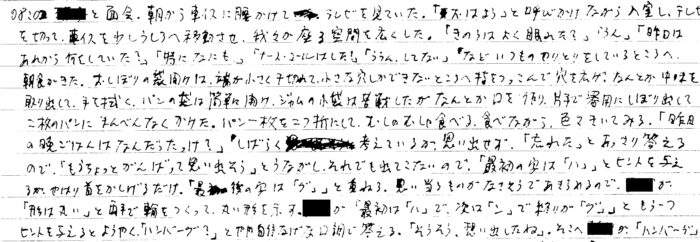 08:20 と面会。朝から車イスに腰かけて、テレビを見ていた。「おはよう」と呼びかけながら入室し、テレビ
を切って、車イスを少しうしろへ移動させ、我々が座る空間を広くした。「きのうはよく眠れた？」「うん」「昨日は
あれから何をしていた？」「特になにも」「ナースコールはした？」「ううん、してない」などいつものやりとりをしているところへ、
朝食がきた。おしぼりの袋開けは、端が小さく千切れて、小さな穴しかできないところへ指をつっこんで穴を広げ、なんとか中味を
取り出して、手を拭く。パンの袋は簡単に開け、ジャムの小袋は苦戦したがなんとか口を作り、片手で器用にしぼり出して
二枚のパンにまんべんなくかけた。パン一枚を二つ折にして、むしゃむしゃ食べる。食べながら、色々きいてみる。「昨日
の晩ごはんはなんだったっけ？」しばらく考えているが、思い出せず、「忘れた」とあっさり答える
ので、「もうちょっとがんばって思い出そう」とうながし、それでも出てこないので、「最初の字は「ハ」」とヒントを与え
るが、やはり首をかしげるだけ。「最後の字は「グ」」と重ねる。思い当るものがなさそうであきらめるので、が、
「形は丸い」と両手で輪をつくって、丸い形を示す。が「最初は「ハ」で、次は「ン」で終りが「グ」」ともう一つ
ヒントを与えるとようやく、「ハンバーグ？」とやや自信なげな口調で答える。「そうそう、思い出したね」。そこへが、「ハンバーグ